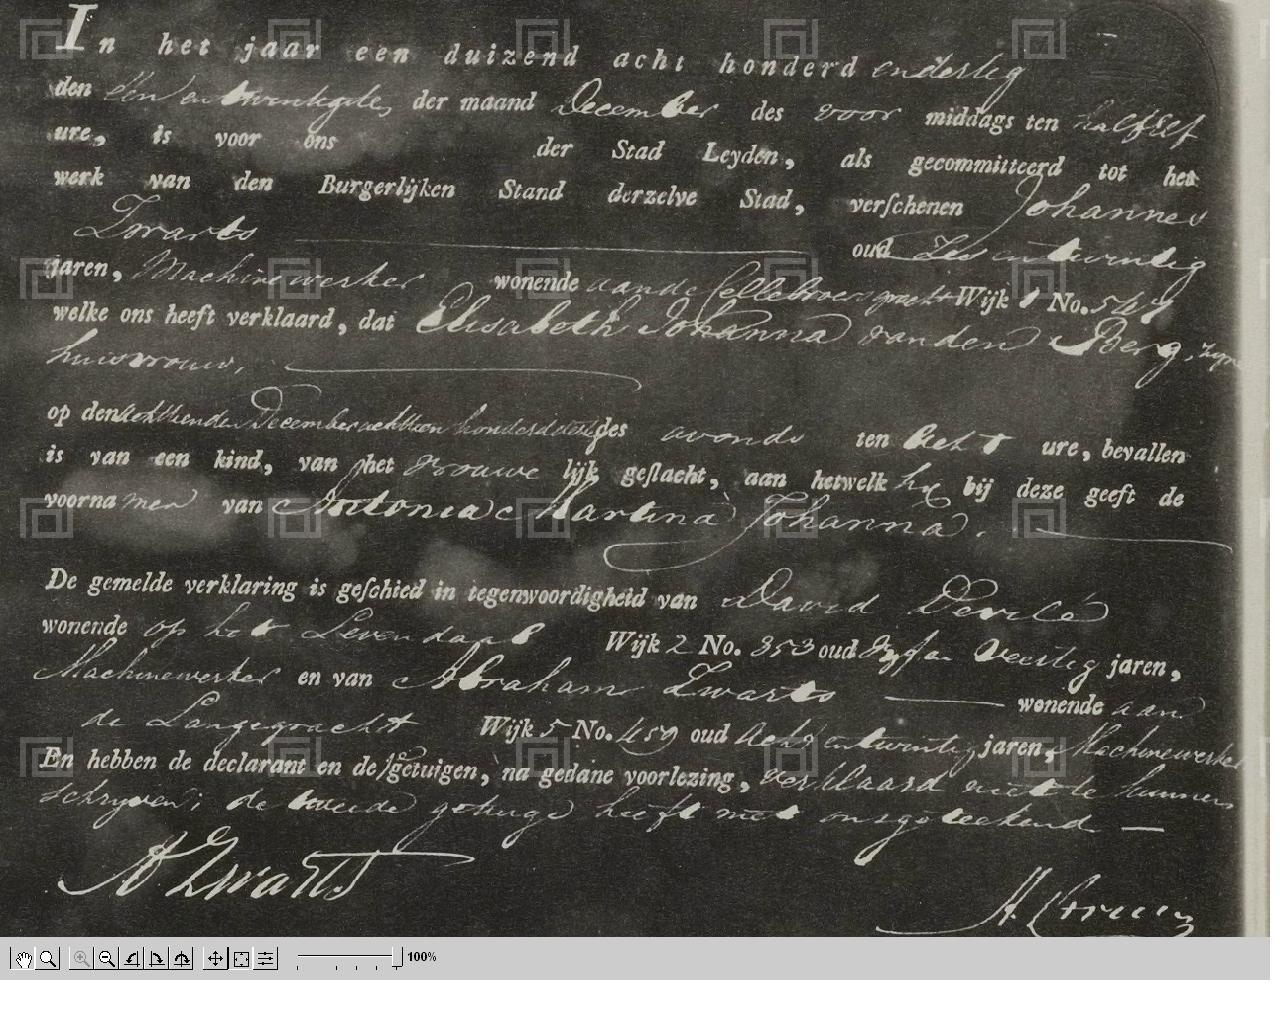 In het jaar een duizend acht honderd endertig
den een en twintigste, der maand December des voor middags ten half Elf
ure, is voor ons der Stad Leyden, als gecommitteerd tot het
werk van den Burgerlijken Stand derzelve Stad, verschenen Johannes
Zwarts oud Zes en twintig
jaren, Machinewerker wonende aan de Cellebroersgracht Wijk No. 547
welke ons heeft verklaard, dat Elisabeth Johanna van den Berg, zyn
huisvrouw,
op den achttienden December achttien honderd dertig des avonds ten acht ure, bevallen
is van een kind, van het vrouwe lijk geslacht, aan hetwelk hy bij deze geeft de
voorna men van Antonia Martina Johanna.
De gemelde verklaring is geschied in tegenwoordigheid van David
wonende op het Levendaal Wijk 2 No. 353 oud Vyf en Veertig jaren,
Machinewerker en van Abraham Zwarts wonende aan
de Langegracht Wijk 5 No. 459 oud Acht en twintig jaren, Machinewerker
En hebben de declarant en de getuigen, na gedane voorlezing, verklaard niet te kunnen
schryven; de tweede getuige heeft met ons geteekend
A Zwarts
100%